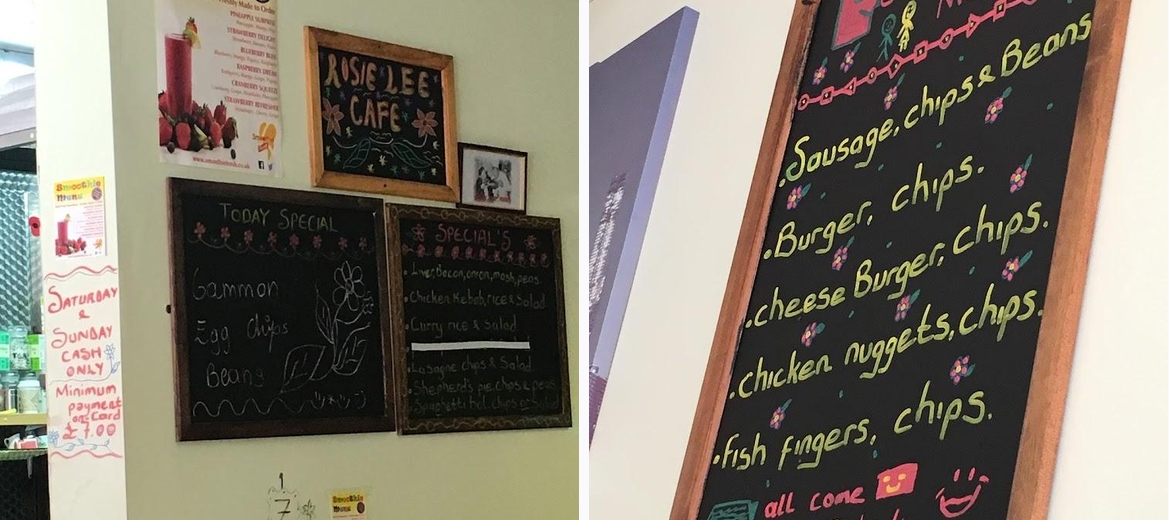 Freshly Made to Order
PINEAPPLE SUNRISE
STRAWBERRY DELIGHT
BLUEBERRY
RASPBERRY DREAM
CRANBERRY SQUEEZE
STRAWBERRY REFRESHER
ROSIE LEE
CAFE
Smoothie
Menu
SATURDAY
&
SUNDAY
CASH
ONLY
Minimum
payment
on Card
£7.00
TODAY SPECIAL
Gammon
Egg Chips
Beans
SPECIAL'S
Liver, Bacon, onion, mash, peas
Chicken Kebab, rice & Salad
Curry rice & Salad
Lasagne chips & Salad
Shepherd's pie, chips & peas
Spaghetti bol. chips or Salad
7
Smoothie
Menu
.Sausage, chips & Beans
.Burger, chips.
.cheese Burger, chips.
.chicken nuggets, chips.
.fish fingers, chips.
all come